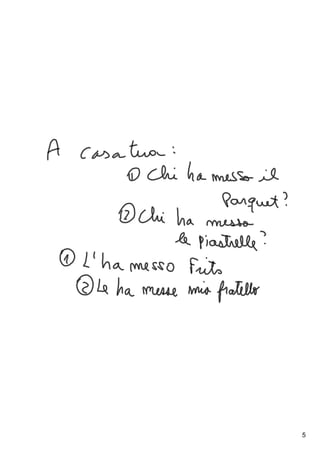 A casa tua:
① Chi ha messo il
Parquet?
② Chi ha messo
le piastrelle?
① L'ha messo Frits
② Le ha messe mio fratello
5